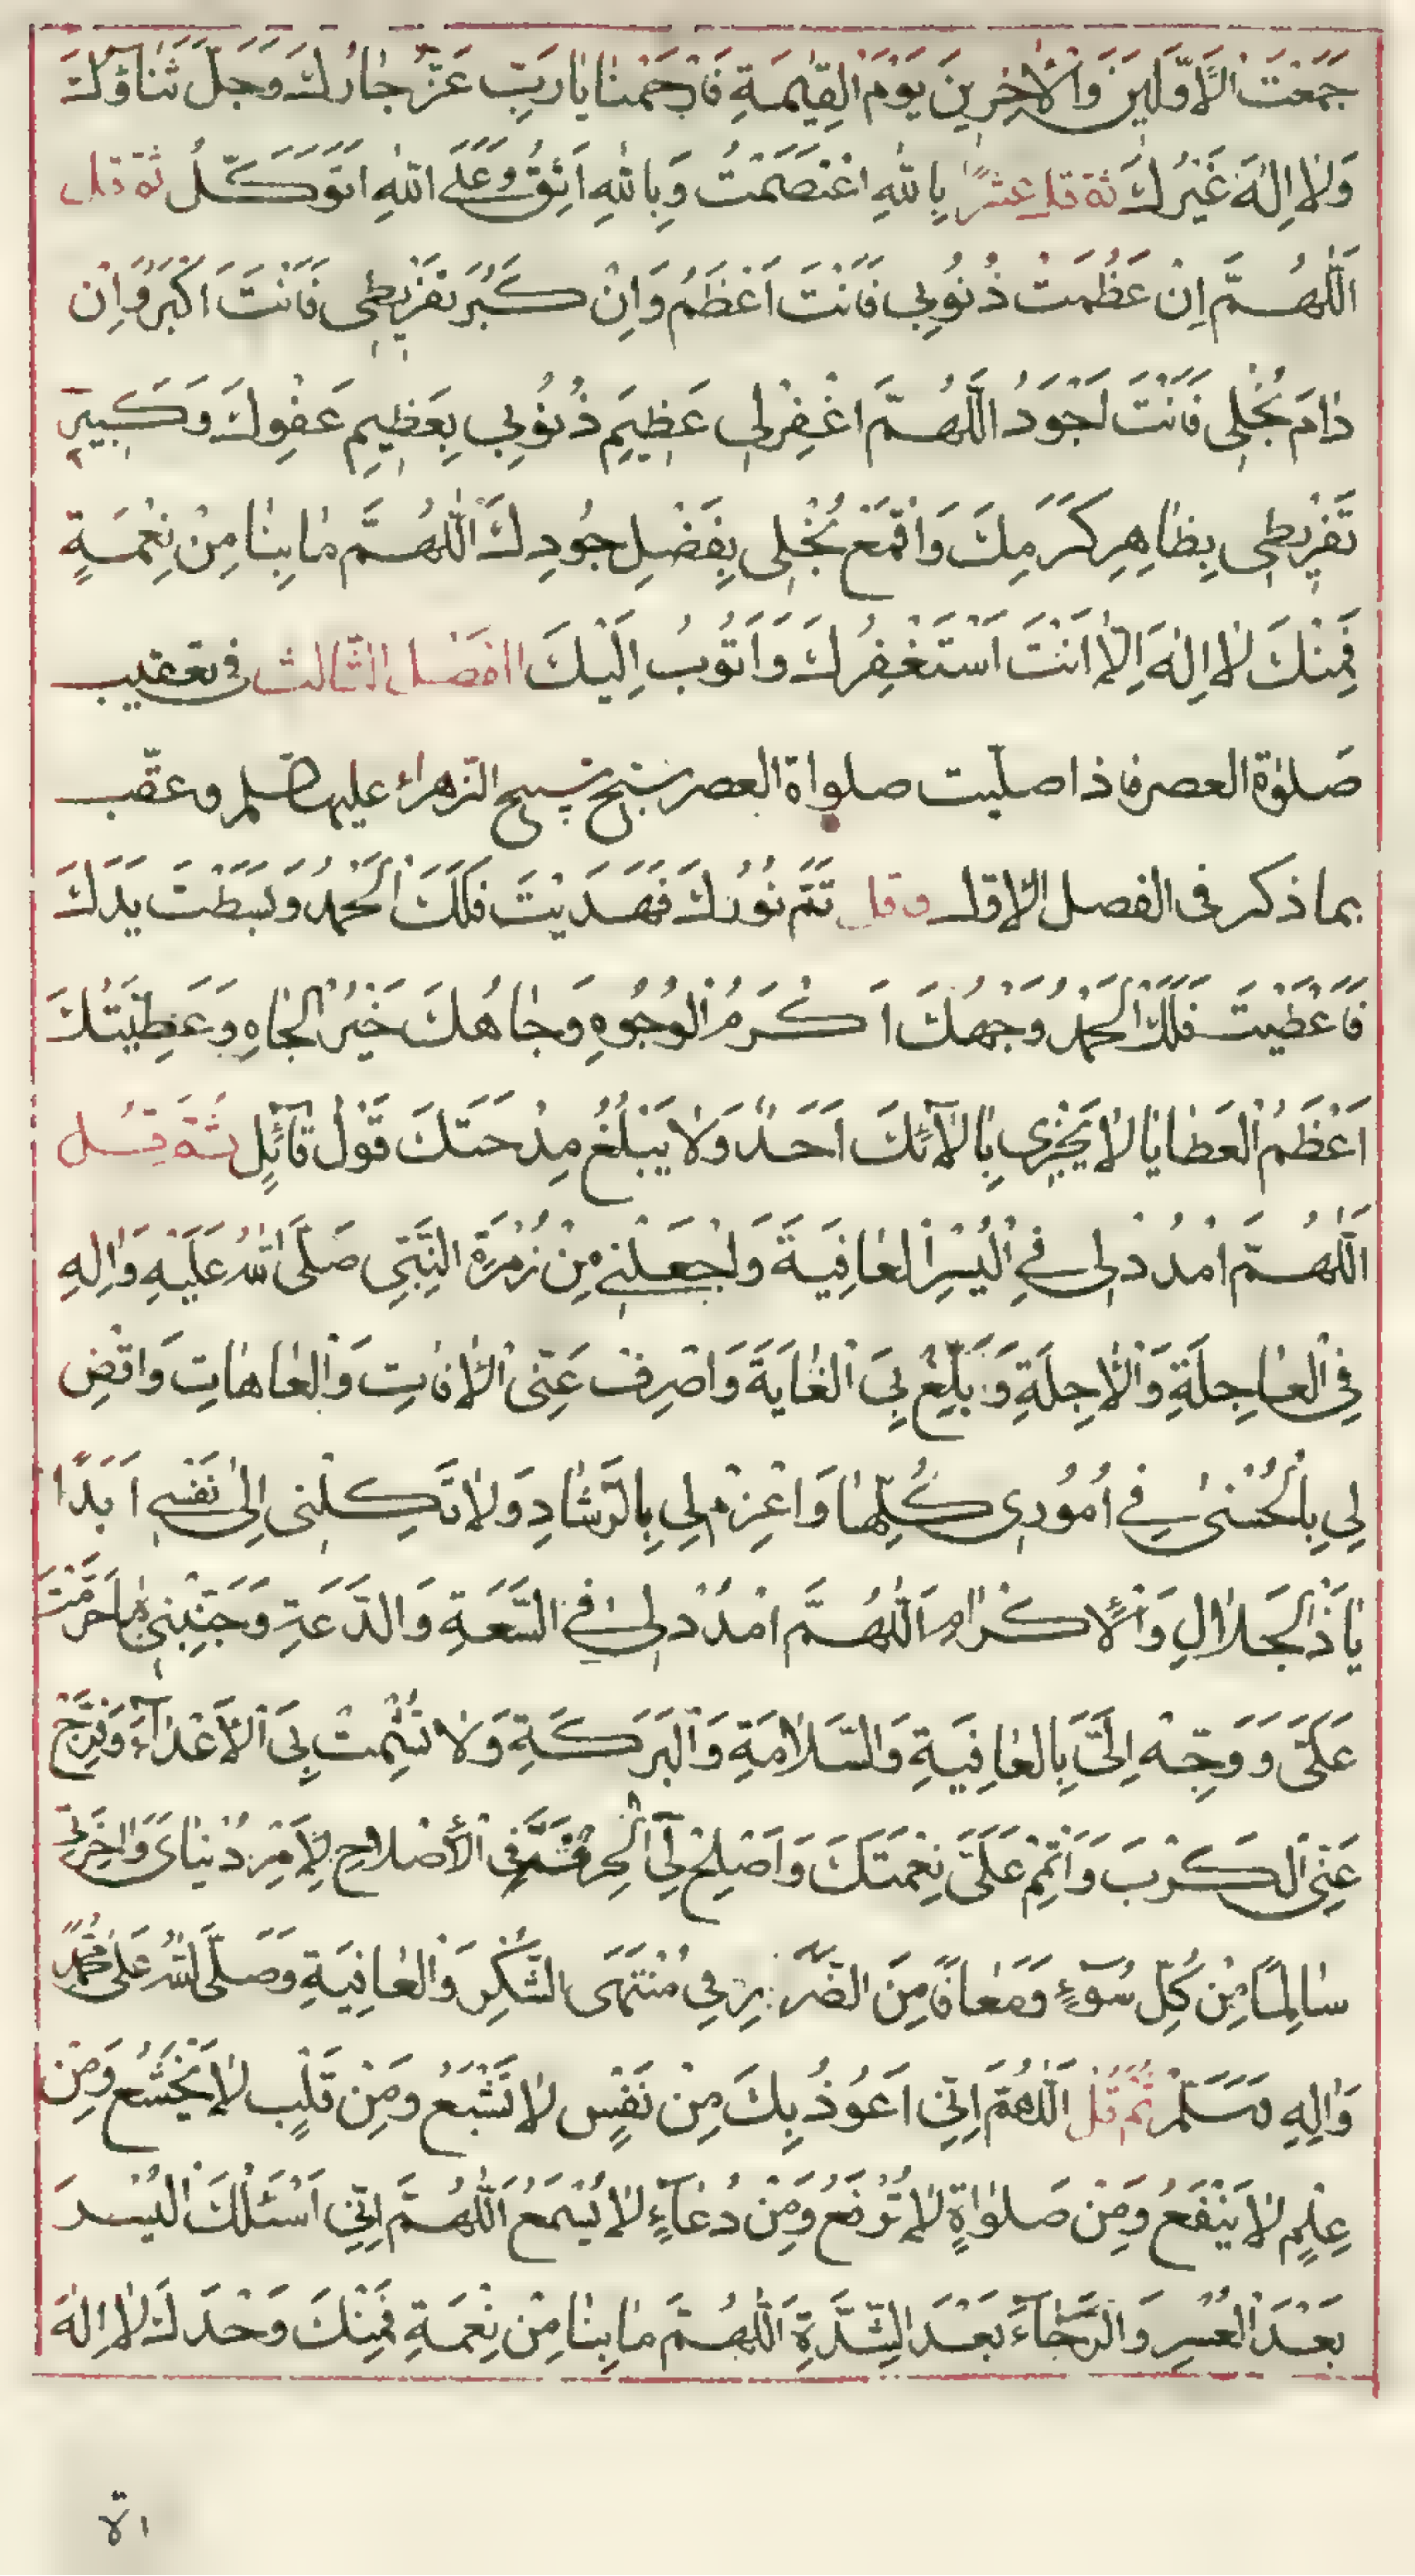 جَمَعْتَ الْاَوَّلينَ وَالْاٰخِرينَ يَوْمَ الْقِيٰمَةِ فَارْحَمْنا يٰا رَبِّ عَزَّ جٰارُكَ وَجَلَّ ثَناؤُكَ
وَلٰا اِلٰهَ غَيْرُكَ ثمّ قل عشرًا بِاللّٰهِ اعْتَصَمْتُ وَبِاللّٰهِ اَثِقُ وَعَلَى اللّٰهِ اَتَوَكَّلُ ثمّ قل
اَللّٰهُمَّ اِنْ عَظُمَتْ ذُنُوبي فَاَنْتَ اَعْظَمُ وَاِنْ كَبُرَ تَفْريطي فَاَنْتَ اَكْبَرُ وَاِنْ
دٰامَ بُخْلي فَاَنْتَ اَجْوَدُ اَللّٰهُمَّ اغْفِرْ لي عَظيمَ ذُنُوبي بِعَظيمِ عَفْوِكَ وَكَبيرَ
تَفْريطي بِظٰاهِرِ كَرَمِكَ وَاقْمَعْ بُخْلي بِفَضْلِ جُودِكَ اَللّٰهُمَّ مٰا بِنٰا مِنْ نِعْمَةٍ
فَمِنْكَ لٰا اِلٰهَ اِلّٰا اَنْتَ اَسْتَغْفِرُكَ وَاَتُوبُ اِلَيْكَ الفصل الثّالث في تعقيب
صلوٰة العصر فاذا صلّيت صلواة العصر سبّح تسبيح الزّهراء عليها السّلم وعقّب
بما ذكر فى الفصل الاوّل وقل تَمَّ نُورُكَ فَهَدَيْتَ فَلَكَ الْحَمْدُ وَبَسَطْتَ يَدَكَ
فَاَعْطَيْتَ فَلَكَ الْحَمْدُ وَجْهُكَ اَكْرَمُ الْوُجُوهِ وَجٰاهُكَ خَيْرُ الْجٰاهِ وَعَطِيَّتُكَ
اَعْظَمُ الْعَطٰايٰا لٰا يَجْزي بِاٰلٰآئِكَ اَحَدٌ وَلٰا يَبْلُغُ مِدْحَتَكَ قَوْلُ قٰآئِلٍ ثمّ قل
اَللّٰهُمَّ امْدُدْ لي فِي الْيُسْرِ الْعٰافِيَةَ وَاجْعَلْني مِنْ زُمْرَةِ النَّبِيِّ صَلَّى اللّٰهُ عَلَيْهِ وَاٰلِهِ
فِي الْعٰاجِلَةِ وَالْاٰجِلَةِ وَبَلِّغْ بِيَ الْغٰايَةَ وَاصْرِفْ عَنِّي الْاٰفاتِ وَالْعٰاهٰاتِ وَاقْضِ
لي بِالْحُسْنىٰ فِي اُمُوري كُلِّهٰا وَاعْزِمْ لي بِالرَّشٰادِ وَلٰا تَكِلْني اِلىٰ نَفْسي اَبَدًا
يٰا ذَا الْجَلٰالِ وَالْاِكْرٰامِ اَللّٰهُمَّ امْدُدْ لي فِي السَّعَةِ وَالدَّعَةِ وَجَنِّبْني مٰا حَرَّمْتَ
عَلَيَّ وَوَجِّهْ اِلَيَّ بِالْعٰافِيَةِ وَالسَّلٰامَةِ وَالْبَرَكَةِ وَلٰا تُشْمِتْ بِيَ الْاَعْدٰآءَ وَفَرِّجْ
عَنِّي الْكَرْبَ وَاَتْمِمْ عَلَيَّ نِعْمَتَكَ وَاَصْلِحْ لِيَ فِي الْاِصْلٰاحِ لِاَمْرِ دُنْيٰايَ وَاٰخِرَتي
سٰالِمًا مِنْ كُلِّ سُوٓءٍ وَمُعٰافًا مِنَ في مُنْتَهَى الشُّكْرِ وَالْعٰافِيَةِ وَصَلَّى اللّٰهُ عَلىٰ مُحَمَّدٍ
وَاٰلِهِ وَسَلَّمْ ثُمَّ قُلْ اَللّٰهُمَّ اِنّي اَعُوذُ بِكَ مِنْ نَفْسٍ لٰا تَشْبَعُ وَمِنْ قَلْبٍ لٰا يَخْشَعُ وَمِنْ
عِلْمٍ لٰا يَنْفَعُ وَمِنْ صَلوٰاةٍ لٰا تُرْفَعُ وَمِنْ دُعٰآءٍ لٰا يُسْمَعُ اَللّٰهُمَّ اِنّي اَسْئَلُكَ الْيُسْرَ
بَعْدَ الْعُسْرِ وَالرَّخٰآءَ بَعْدَ الشِّدَّةِ اَللّٰهُمَّ مٰا بِنٰا مِنْ نِعْمَةٍ فَمِنْكَ وَحْدَكَ لٰا اِلٰهَ